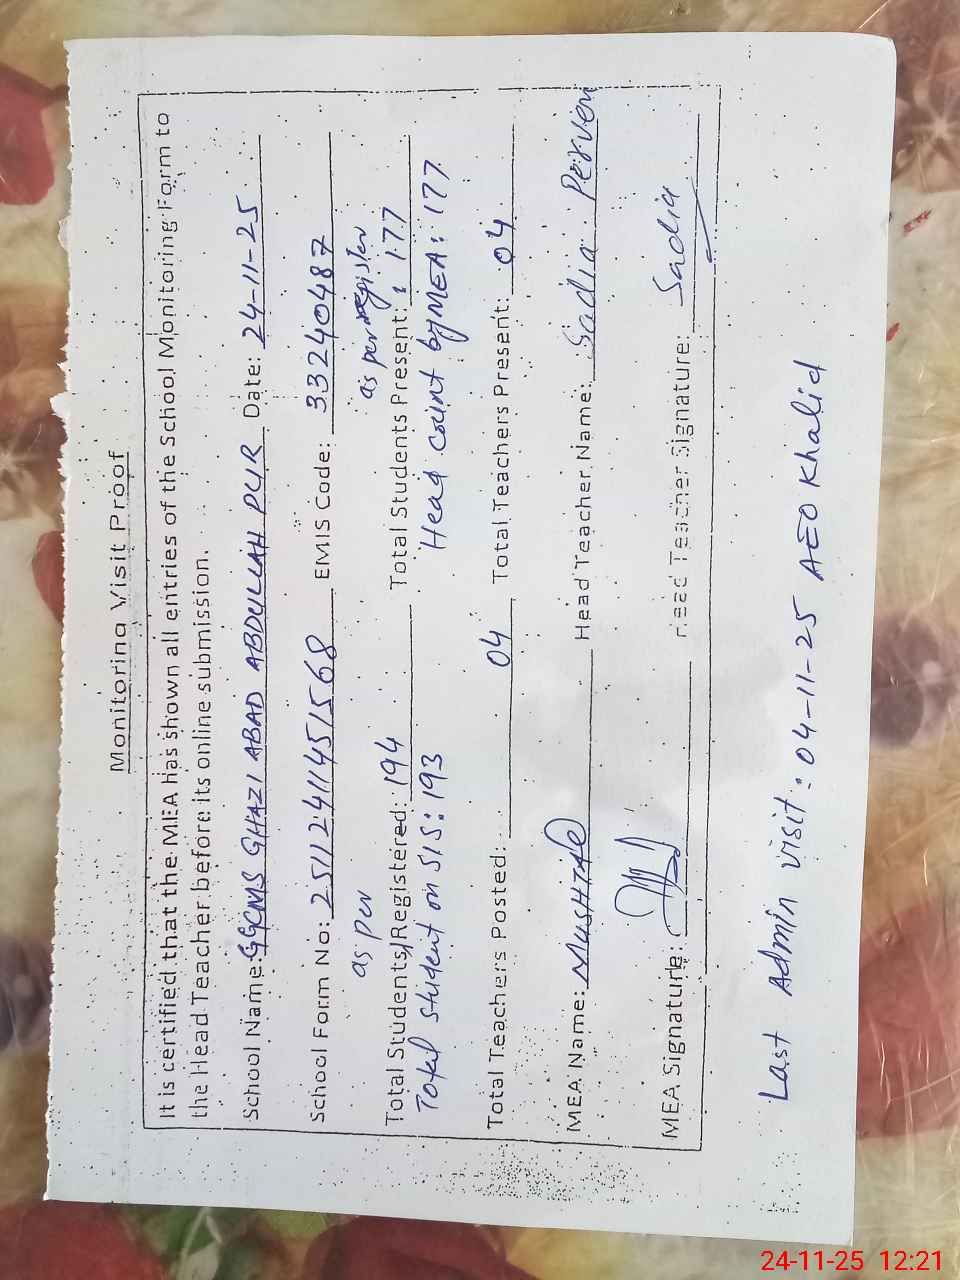 Monitoring Visit Proof
It is certified that the MEA has shown all entries of the School Monitoring Form to
the Head Teacher before its online submission.
School Name: GGCMS GHAZI ABAD ABDULLAH PUR Date: 24-11-25
School Form No: 25112411451568 EMIS Code: 33240487
as per as per register
Total Students Registered: 194 Total Students Present: 177
Total student on SIS: 193 Head count by MEA: 177
Total Teachers Posted: 04 Total Teachers Present: 04
MEA Name: Head Teacher Name: Sadia Perven
MEA Signature: Head Teacher Signature: Sadia
Last Admin visit: 04-11-25 AEO Khalid
24-11-25 12:21